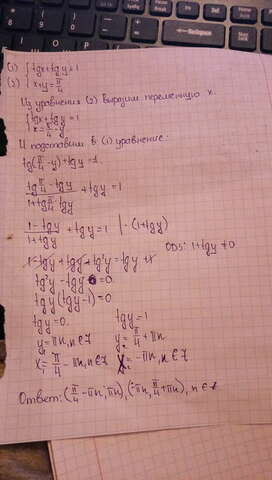 (1) { tgx+tgy=1
(2) { x+y=π/4
Из уравнения (2) Выразим переменную x.
{ tgx+tgy=1
{ x=π/4-y
И подставим в (1) уравнение:
tg(π/4-y)+tgy=1.
(tg π/4 - tgy)/(1+tg π/4 · tgy) + tgy = 1
(1-tgy)/(1+tgy) + tgy = 1 | · (1+tgy)
ОДЗ: 1+tgy ≠ 0
1-tgy+tgy+tg²y=tgy+1
tg²y-tgy=0
tgy(tgy-1)=0
tgy=0. tgy=1
y₁=πn, n∈Z y₂=π/4+πn
x₁=π/4-πn, n∈Z x₂=-πn, n∈Z
Ответ: (π/4-πn; πn), (-πn, π/4+πn), n∈Z
Backspace